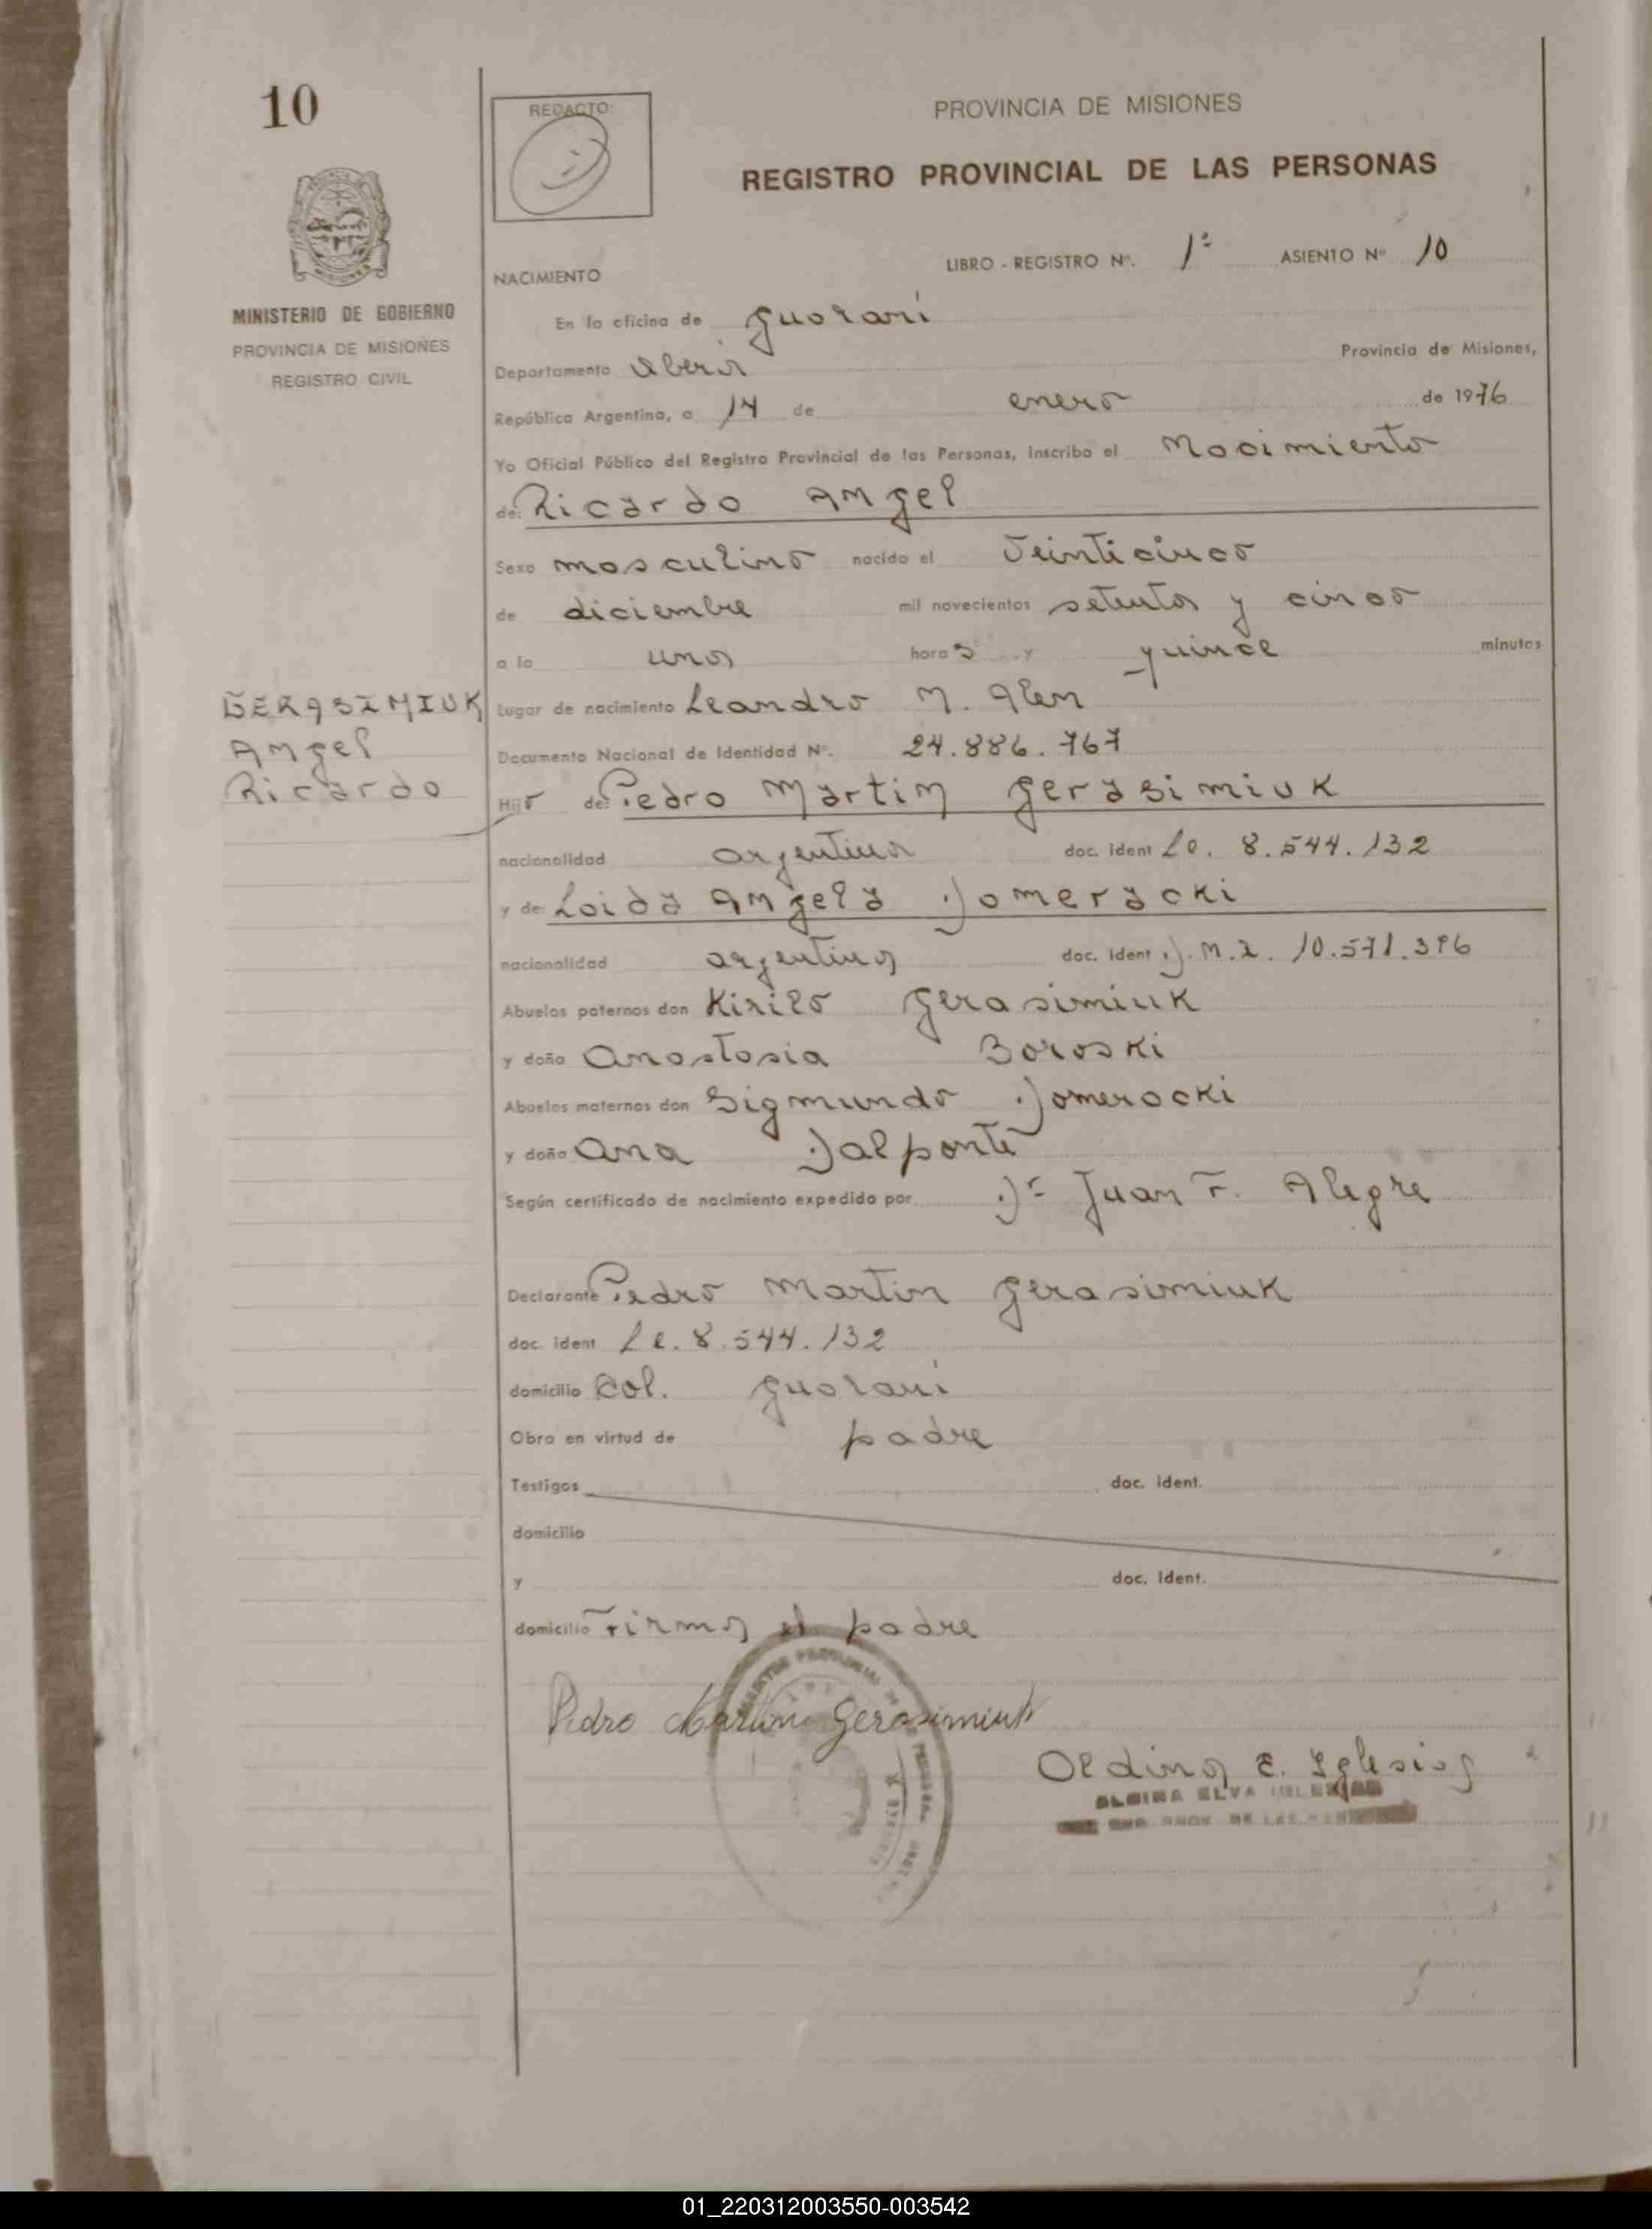 10
REDACTO:
PROVINCIA DE MISIONES
REGISTRO PROVINCIAL DE LAS PERSONAS
LIBRO - REGISTRO Nº. 1º ASIENTO Nº 10
NACIMIENTO
MINISTERIO DE GOBIERNO
PROVINCIA DE MISIONES
REGISTRO CIVIL
En la oficina de Guaraní
Departamento Oberá Provincia de Misiones,
República Argentina, a 14 de enero de 1976
Yo Oficial Público del Registro Provincial de las Personas, inscribo el Nacimiento
de: Ricardo Angel
Sexo masculino nacido el Veinticinco
de diciembre mil novecientos setenta y cinco
a la una horas y quince minutos
GERASIMIUK
Angel
Ricardo
Lugar de nacimiento Leandro N. Alem
Documento Nacional de Identidad Nº. 24.886.767
Hijo de: Pedro Martin Gerasimiuk
nacionalidad argentina doc. ident Le. 8.544.132
y de: Loida Angela Domeracki
nacionalidad argentina doc. ident D.N.I. 10.571.396
Abuelos paternos don Kirilo Gerasimiuk
y doña Anastasia Boroski
Abuelos maternos don Sigmundo Domeracki
y doña Ana Dalponte
Según certificado de nacimiento expedido por Dr Juan F. Alegre
Declarante Pedro Martin Gerasimiuk
doc. ident Le. 8.544.132
domicilio Col. Guaraní
Obra en virtud de padre
Testigos doc. ident.
domicilio
y doc. ident.
domicilio Firma el padre
Pedro Martin Gerasimiuk
Oldina E. Iglesias
ELVA IGLESIAS
01_220312003550-003542